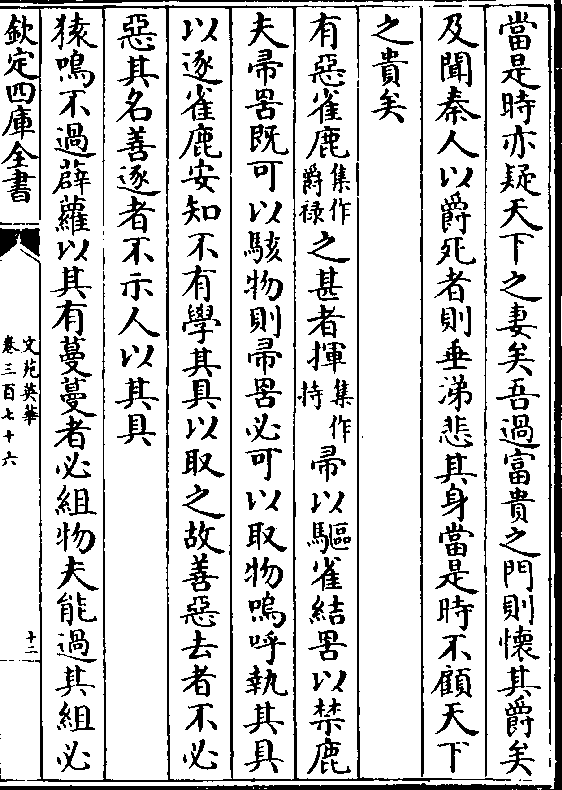 當是時亦疑天下之妻矣吾過富貴之門則懷其爵矣
及聞秦人以爵死者則垂涕悲其身當是時不顧天下
之貴矣
有惡雀鹿集作爵禄之甚者揮集作持帚以驅雀結罟以禁鹿
夫帚罟既可以駭物則帚罟必可以取物嗚呼執其具
以逐雀鹿安知不有學其具以取之故善惡去者不必
惡其名善逐者不示人以其具
猿鳴不過薜蘿以其有蔓蔓者必組物夫能過其組必
欽定四庫全書
文苑英華
卷三百七十六
十二